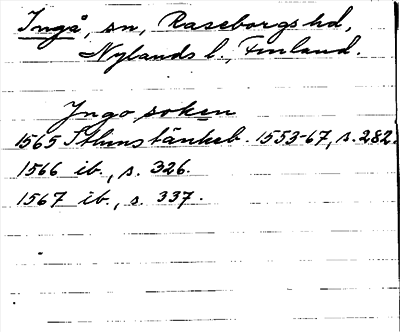 Ingå, sn, Raseborgs hd,
Nylands l., Finland.
Yngo soken
1565 Sthms tänkeb. 1553-67, s. 282.
1566 ib., s. 326.
1567 ib., s. 337.